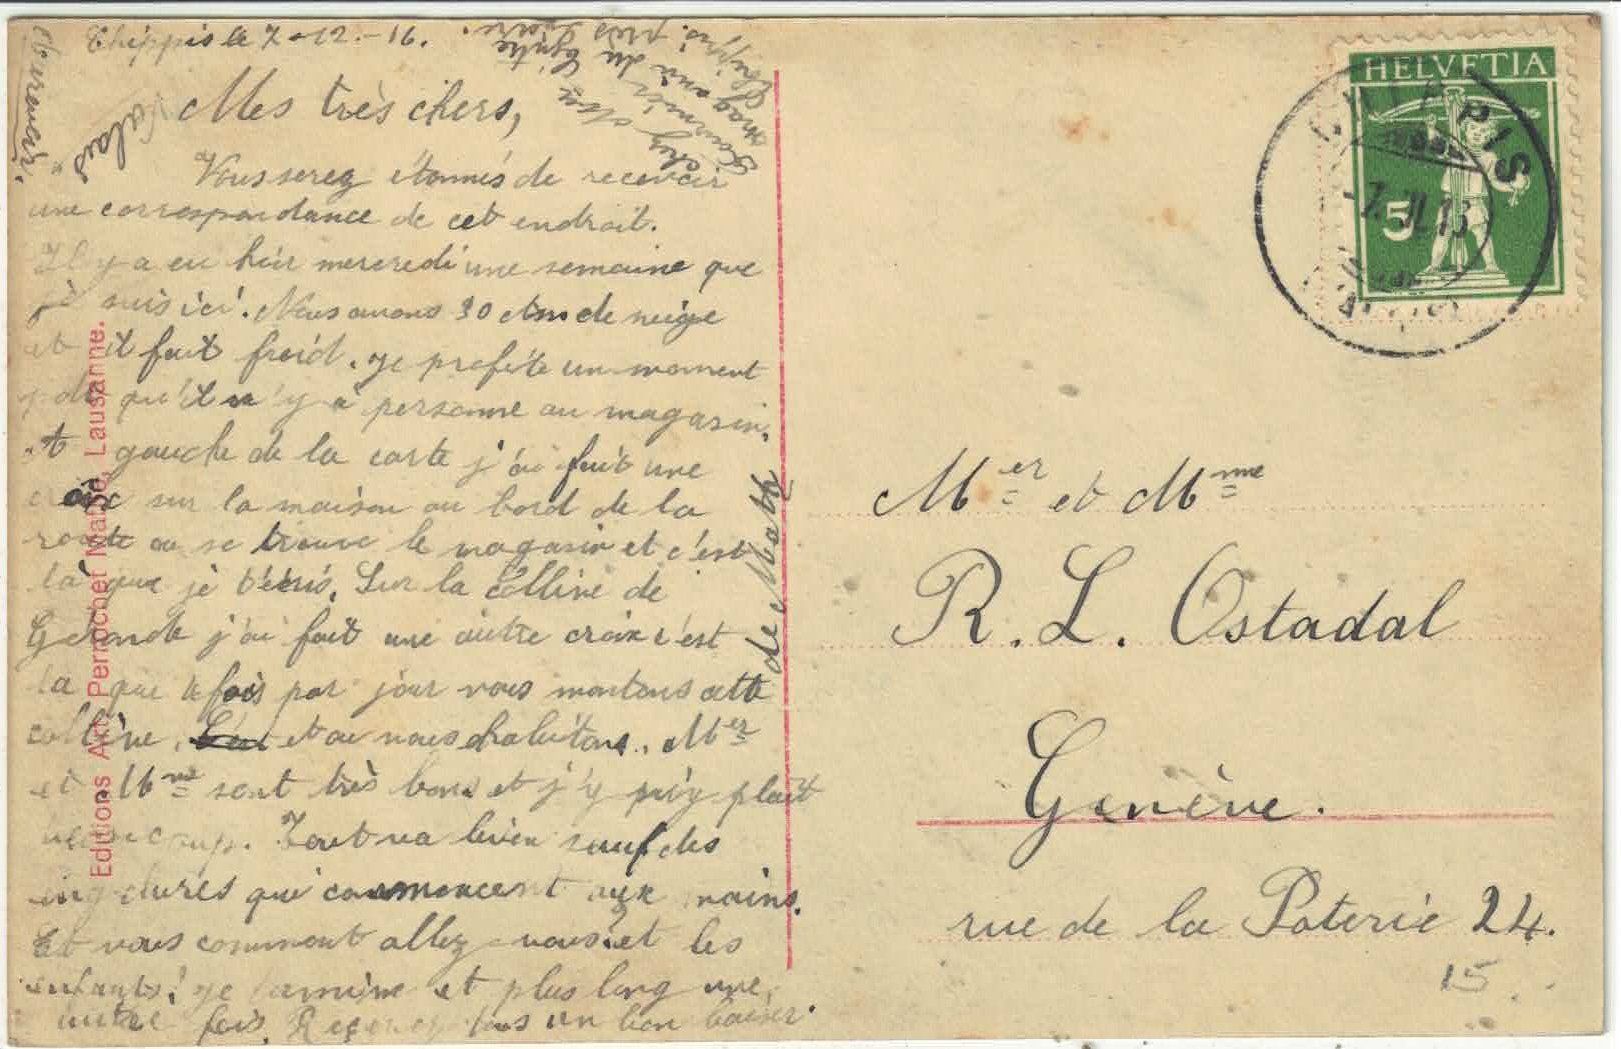 Chippis le 7-12.-16.
Mes très chers,
Vous serez étonnés de recevoir
une correspondance de cet endroit.
Il y a eu hier mercredi une semaine que
je suis ici. Nous avons 30 ctm de neige
et il fait froid. Je profite un moment
qu'il n'y a personne au magasin.
A gauche de la carte j'ai fait une
croix sur la maison au bord de la
route ou se trouve le magasin et c'est
là que je t'écris. Sur la colline de
Géronde j'ai fait une autre croix c'est
la que 4 fois par jour nous montons cette
colline, et ou nous habitons. Mer
et Mme sont très bons et j'y plait
beaucoup. Tout va bien sauf des
engelures qui commencent aux mains.
Et vous comment allez-vous et les
enfants? Je termine et plus long une
autre fois. Recevez tous un bon baiser
de Math
Au revoir.
Valais
chez
magasin du
Chippis près Sierre.
Editions Art. Perrochet Matile, Lausanne.
HELVETIA
5
CHIPPIS
Mer et Mme
R. L. Ostadal
Genève.
rue de la Poterie 24.
15